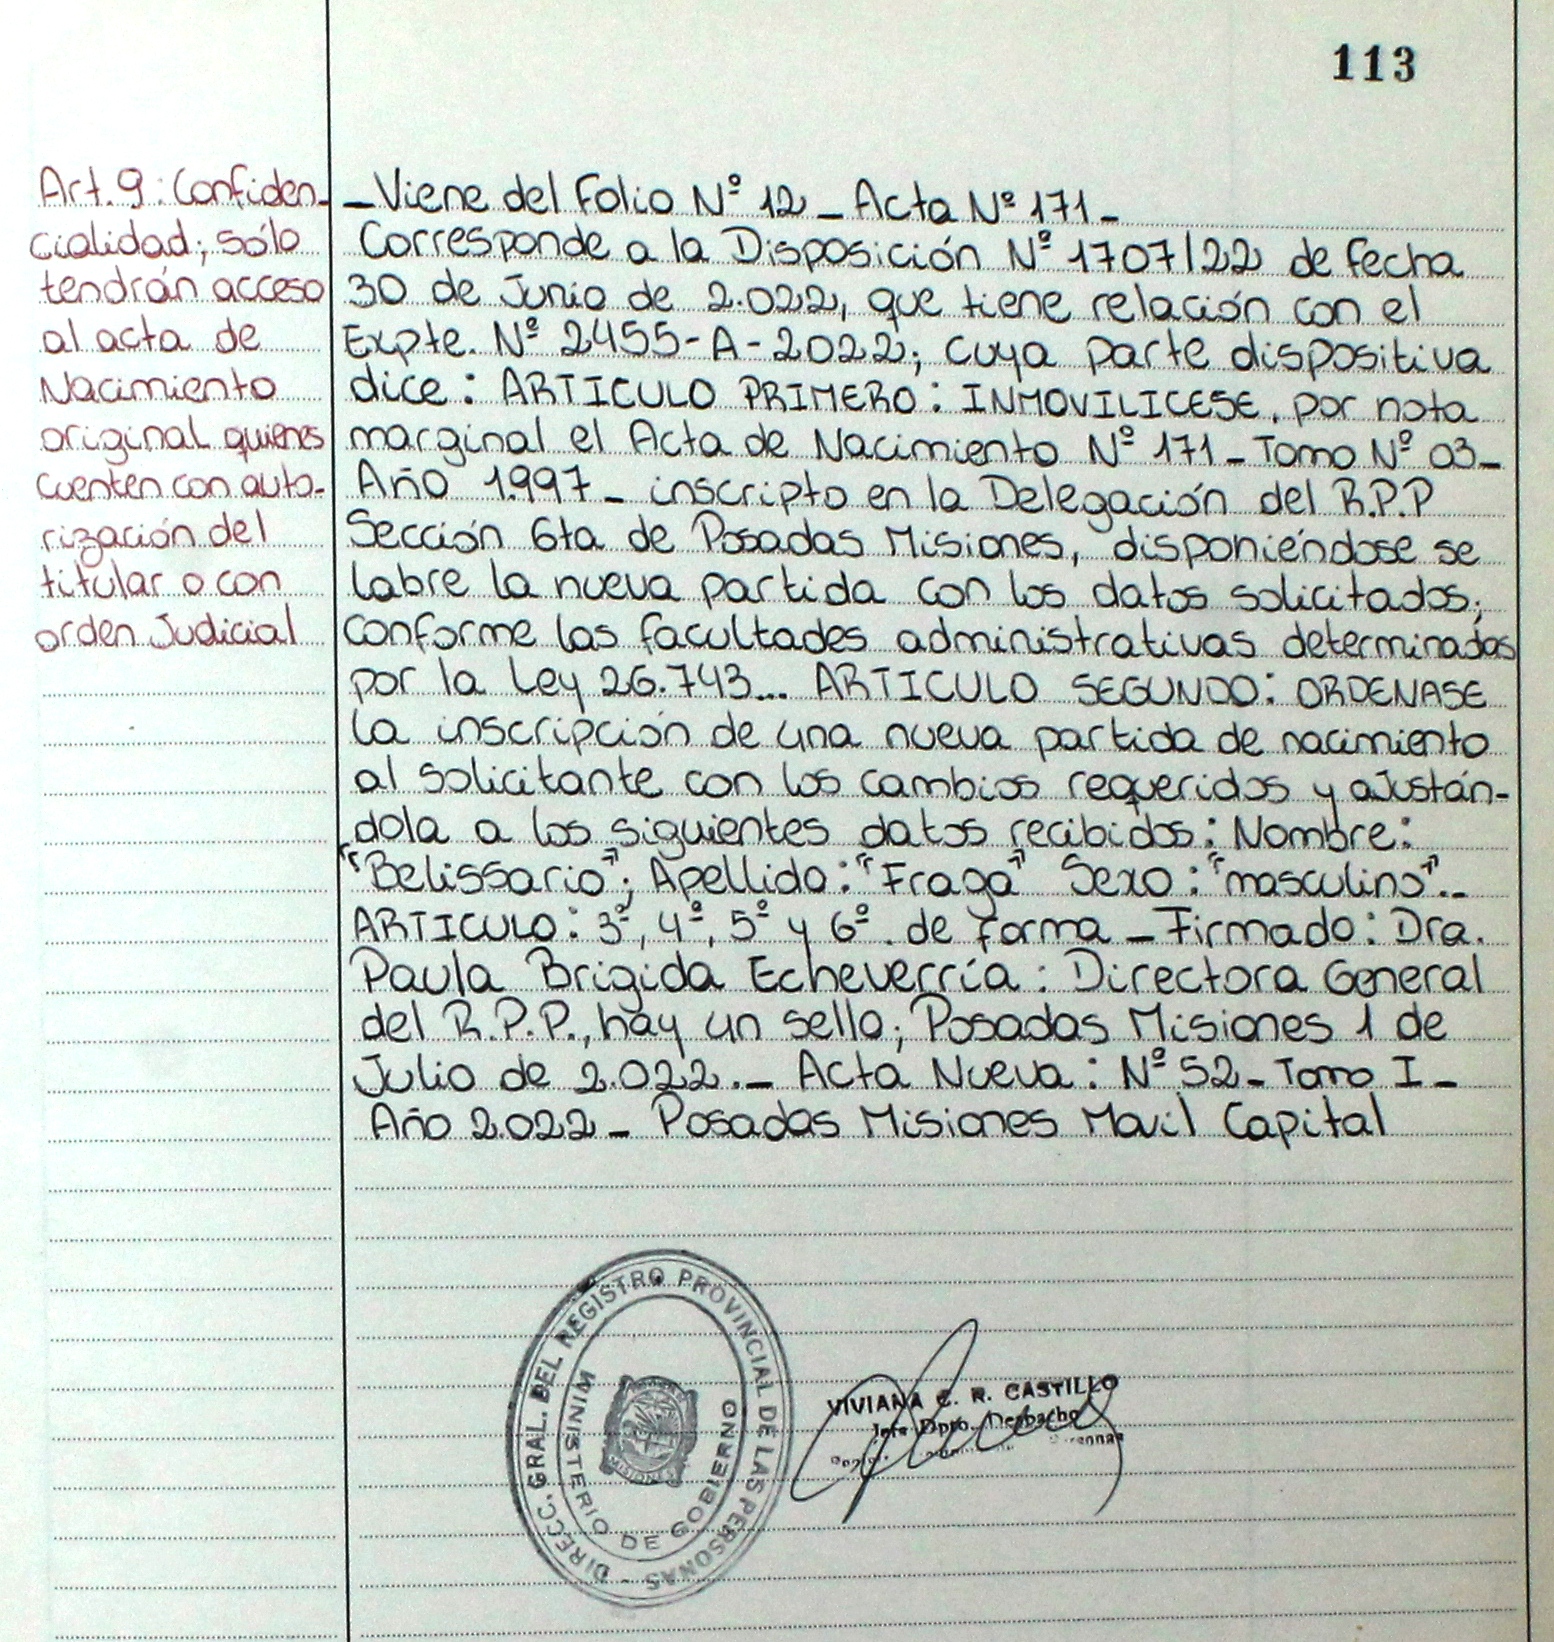 113
Art. 9: Confiden-
cialidad; sólo
tendrán acceso
al acta de
Nacimiento
original quienes
cuenten con auto-
rización del
titular o con
orden Judicial
_Viene del Folio Nº 12_ Acta Nº 171_
Corresponde a la Disposición Nº 1707/22 de fecha
30 de Junio de 2.022, que tiene relación con el
Expte. Nº 2455-A-2022; cuya parte dispositiva
dice: ARTICULO PRIMERO: INMOVILICESE, por nota
marginal el Acta de Nacimiento Nº 171_Tomo Nº 03_
Año 1.997_ inscripto en la Delegación del R.P.P
Sección 6ta de Posadas Misiones, disponiéndose se
labre la nueva partida con los datos solicitados;
conforme las facultades administrativas determinadas
por la Ley 26.743... ARTICULO SEGUNDO: ORDENASE
la inscripción de una nueva partida de nacimiento
al solicitante con los cambios requeridos y aJustán-
dola a los siguientes datos recibidos: Nombre:
"Belissario"; Apellido: "Fraga" Sexo: "masculino"._
ARTICULO: 3º, 4º, 5º y 6º. de forma _ Firmado: Dra.
Paula Brigida Echeverría: Directora General
del R.P.P., hay un sello; Posadas Misiones 1 de
Julio de 2.022._ Acta Nueva: Nº 52_ Tomo I_
Año 2.022_ Posadas Misiones Movil Capital
DIRECC. GRAL. DEL REGISTRO PROVINCIAL DE LAS PERSONAS -
MINISTERIO DE GOBIERNO
VIVIANA C. R. CASTILLO
Jefe Dpto. Despacho